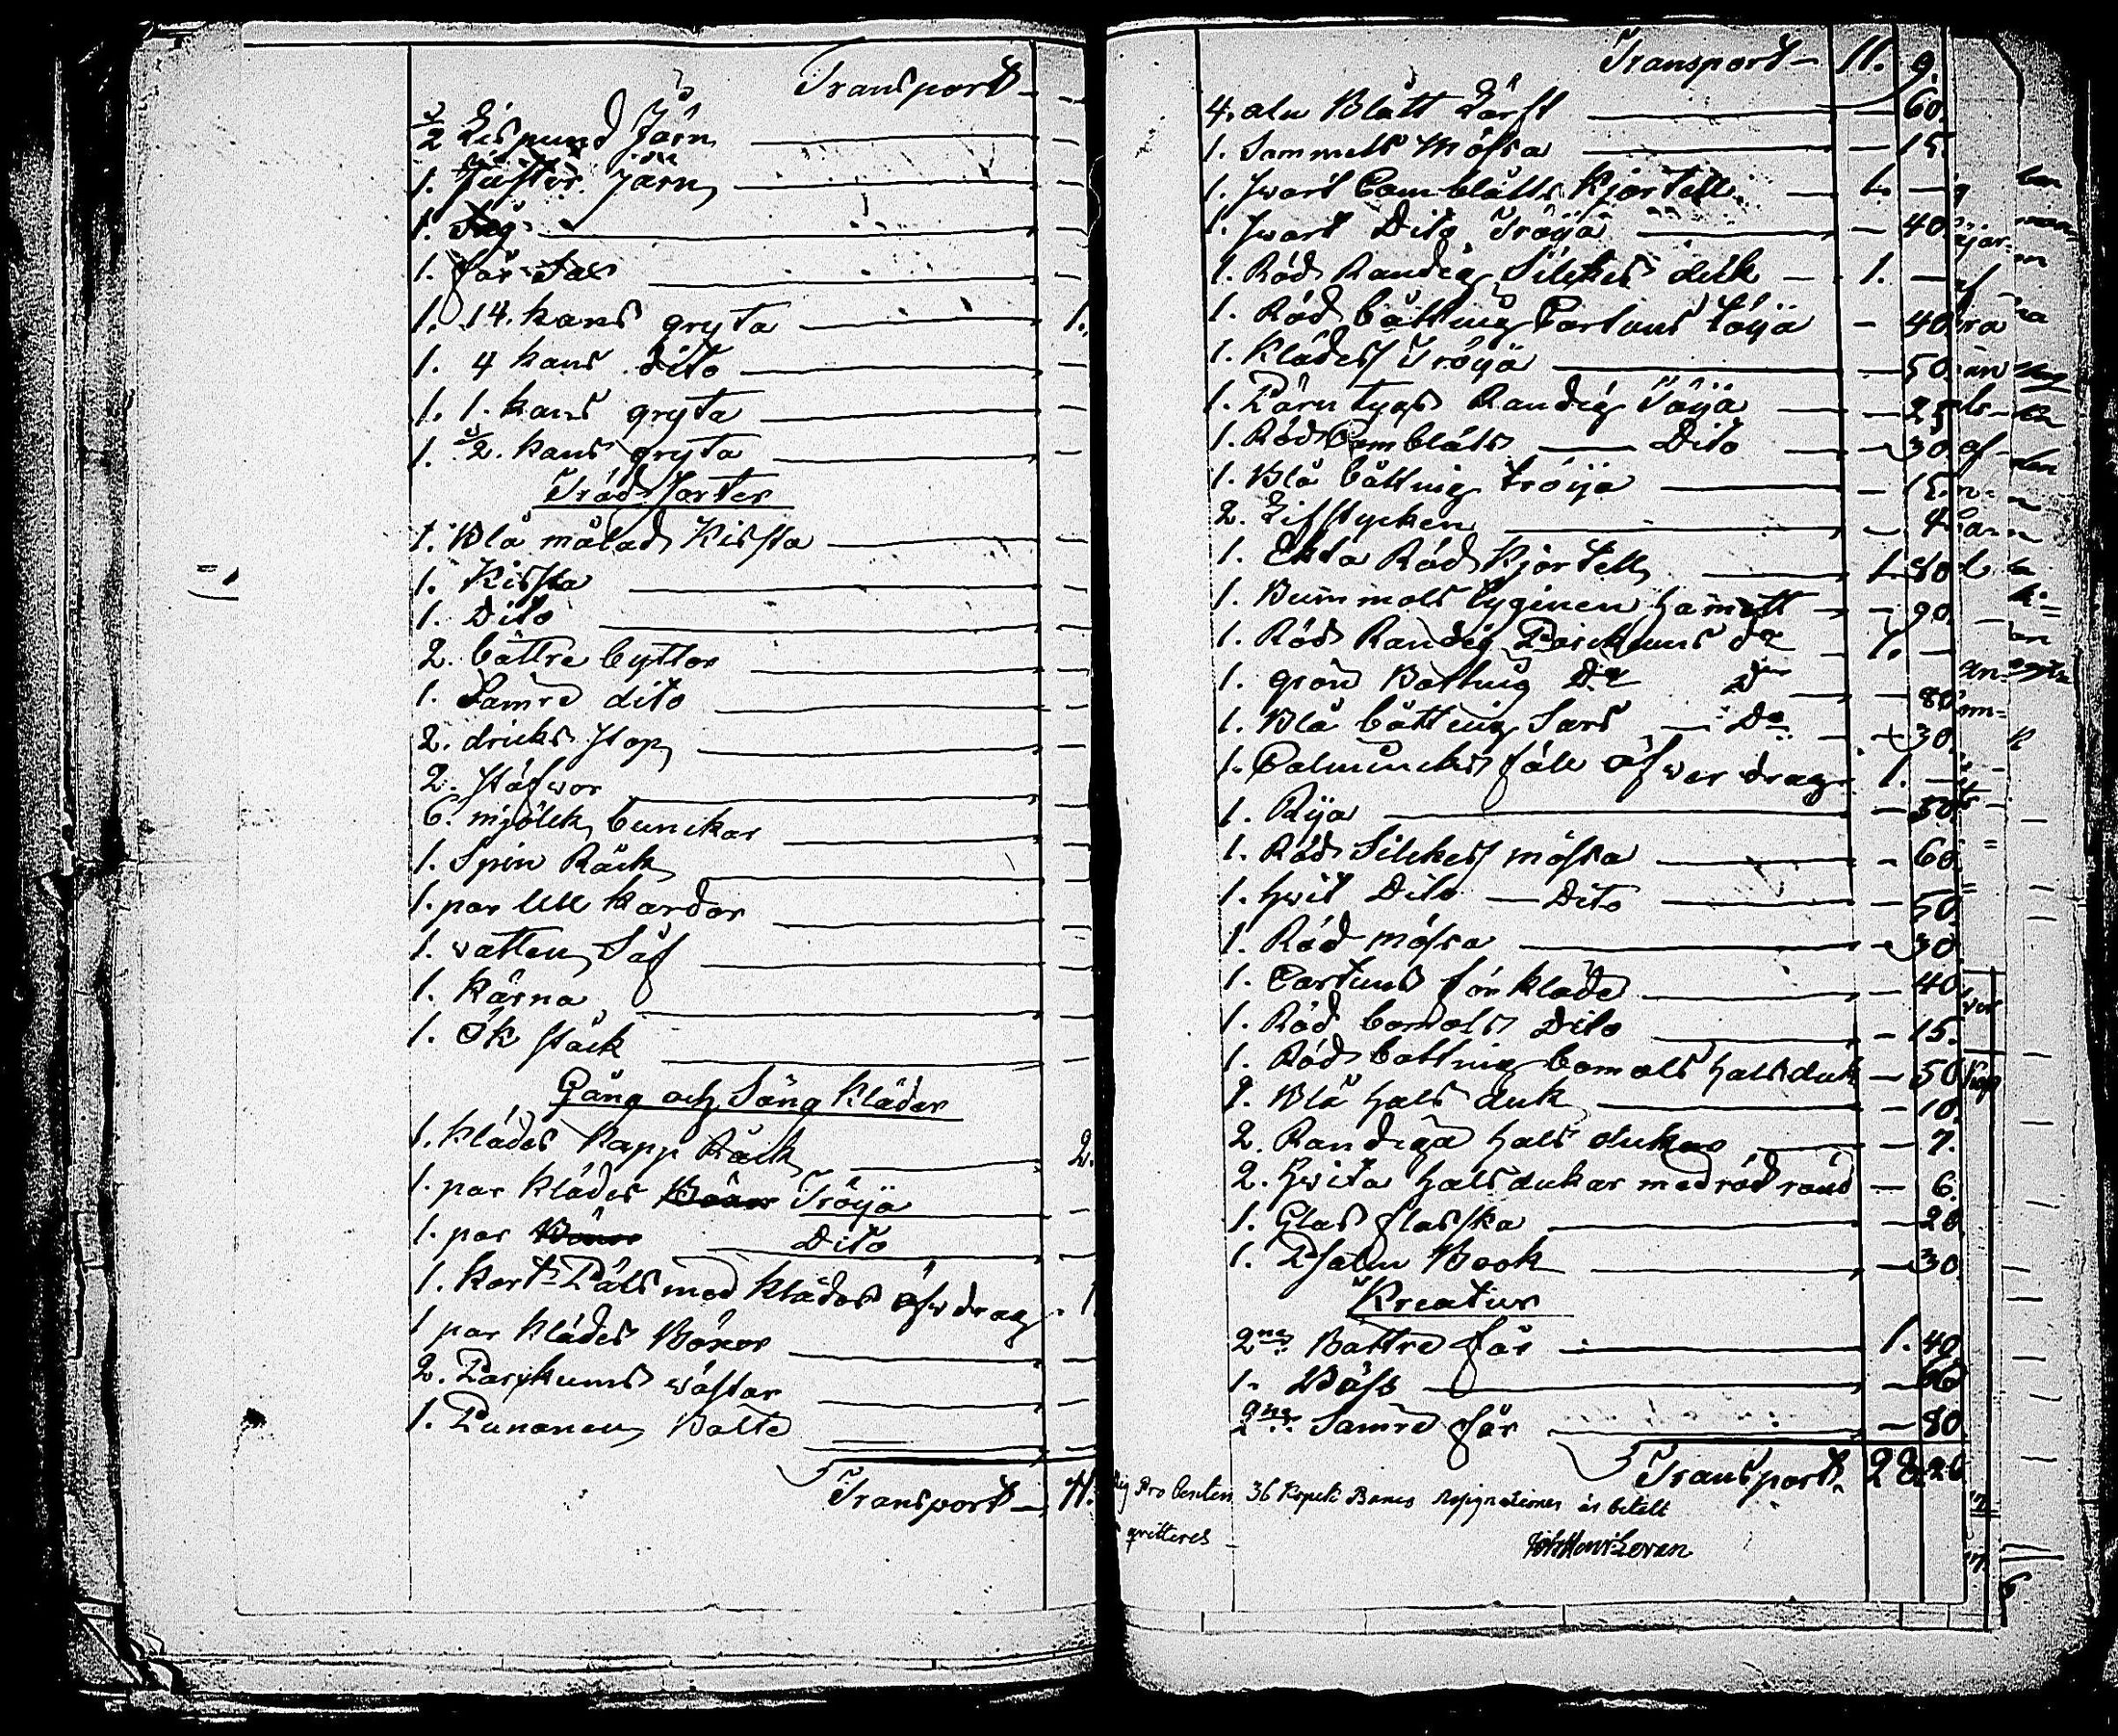 Transport —
½ Lispund Järn —
1. Järn —
1. Såg —
1. får Sax —
1. 14. kans gryta — 1.
1. 4 kans dito —
1. 1. kans gryta —
1. ½. kans gryta —
Träd Sorter
1. Blå målad Kista —
1. Kista —
1. Dito —
2. bättre byttor —
1. Sämre dito —
2. dricks stop —
2. stäfwor —
6. mjölck bunckar —
1. Spin Råck —
1. par Ull kardor —
1. vatten Så —
1. Kärna —
1. Ök stäck —
Gång och Säng Kläder
1. Klädes Kapp Råck — 2.
1. par Klädes Böxor Tröija —
1. par Böxor — Dito —
1. Kort Päls med Klädes öfwdrag — 1
1 par Klädes Böxor —
2. Parkums wästar —
1. Punanen Bälte —
Transport — 11.
Transport — 11. 9.
4. aln Blått Lärft — 60.
1. Sammets Mössa — 15.
1. Swart Camblåtts Kjortell — 1. —
1. Swart Dito Tröija — 40
1. Röd Randig Silckes duk — 1. —
1. Röd båttnig Cartuns töija — 40
1. Klädes Tröija — 50.
1. Lärntygs Randig töija — 25
1. Röd Camblåts — Dito — 30.
1. Blå båttnig tröija — 15.
2. Lifstycken —
1. Ekta Röd Kjortell — 1. 80
1. Bummols tyginen hamett — 90.
1. Röd Randig Parckums do — 1. —
1. grön Båttnig Do — 80
1. Blå båttnig Sars — Do — 30.
1. Calmincks fäll öfwer drag — 1. —
1. Rya — 50.
1. Röd Silckes mössa — 60.
1. hwit Dito — Dito — 50.
1. Röd mössa — 30
1. Cartuns förkläde — 40
1. Röd bomols Dito — 15.
1. Röd båttnig bomols halsduk — 50
1. Blå hals duk — 10.
2. Randiga hals dukar — 7.
2. hwita halsdukar med röd rand — 6.
1. Glas flasska — 20
1. Psalm Book — 30.
Kreatur
2ne Battre får — 1. 40
1. Bäss — 60
2ne Samre får — 80
Transport. 28. 26
Pro Centen 36 Kopek Banco Assignationer är betelt
qvitteres —